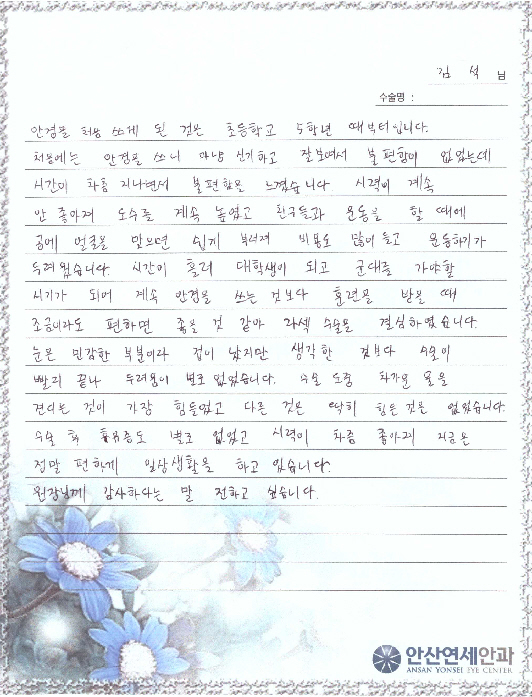 김 석 님
수술명 :
안경을 처음 쓰게 된 것은 초등학교 5학년 때부터입니다.
처음에는 안경을 쓰니 마냥 신기하고 잘보여서 불편함이 없었는데
시간이 차츰 지나면서 불편함을 느꼈습니다 시력이 계속
안 좋아져 도수를 계속 높였고 친구들과 운동을 할 때에
공에 얼굴을 맞으면 쉽게 부서져 비용도 많이 들고 운동하기가
두려웠습니다 시간이 흘러 대학생이 되고 군대를 가야할
시기가 되어 계속 안경을 쓰는 것보다 훈련을 받을 때
조금이라도 편하면 좋을 것 같아 라섹 수술을 결심하였습니다
눈은 민감한 부분이라 겁이 났지만 생각한 것보다 수술이
빨리 끝나 두려움이 별로 없었습니다. 수술 도중 차가운 물을
견디는 것이 가장 힘들었고 다른 것은 딱히 힘든것은 없었습니다.
수술 후 통증도 별로 없었고 시력이 차츰 좋아져 지금은
정말 편하게 일상생활을 하고 있습니다.
원장님께 감사하다는 말 전하고 싶습니다.
안산연세안과
ANSAN YONSEI EYE CENTER